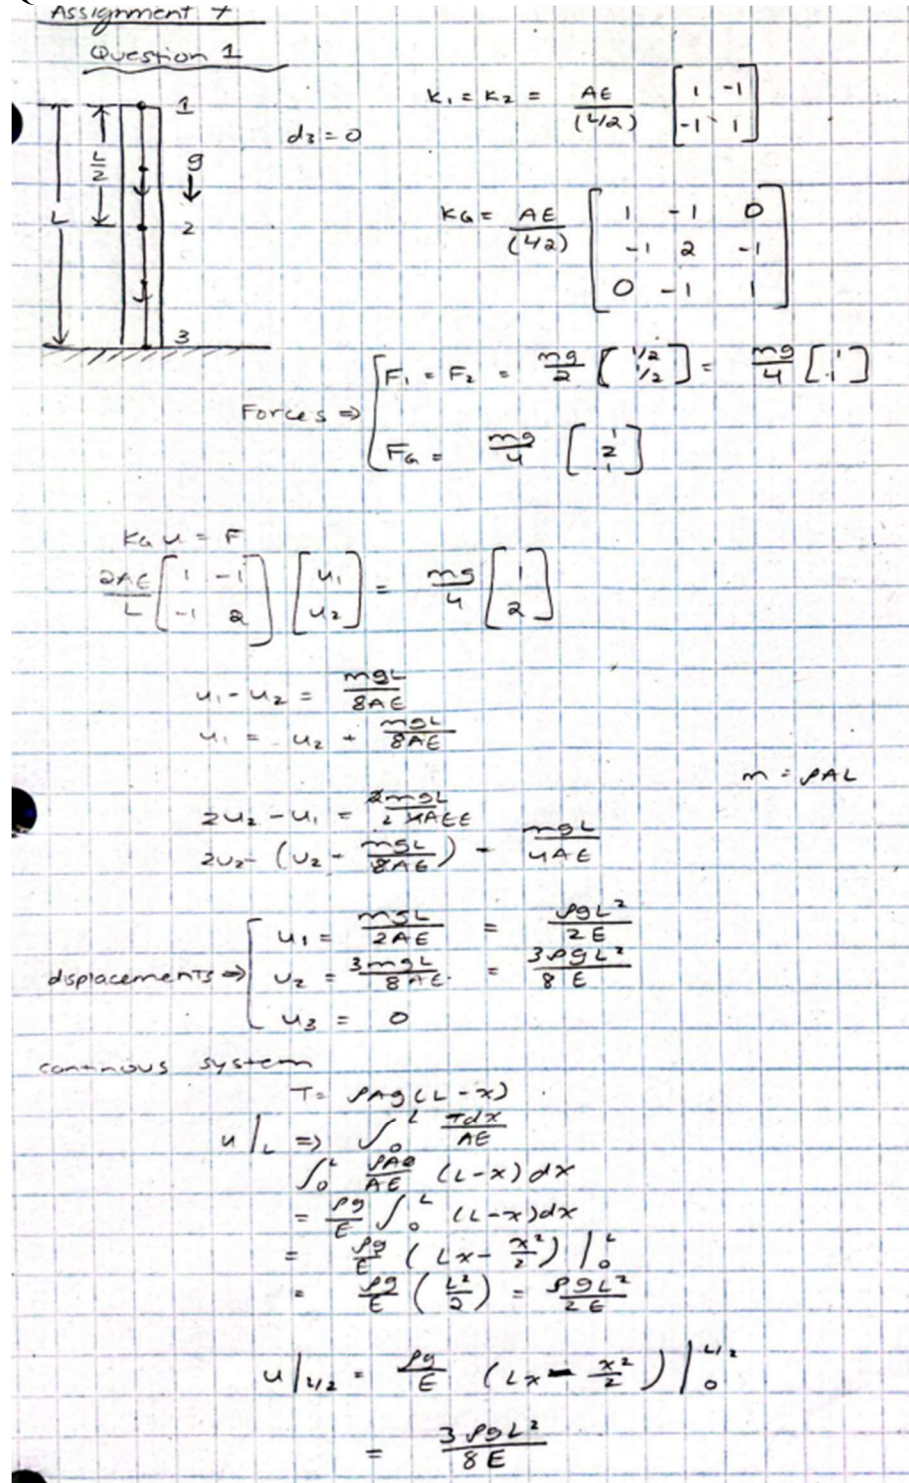 Assignment 7
Question 1
1
d₃ = 0
K₁ = K₂ = AE/(L/2) [1 -1; -1 1]
L/2
g
L
2
KG = AE/(L/2) [1 -1 0; -1 2 -1; 0 -1 1]
3
Forces ⇒
F₁ = F₂ = mg/2 [1/2; 1/2] = mg/4 [1; 1]
FG = mg/4 [1; 2; 1]
KG u = F
2AE/L [1 -1; -1 2] [u₁; u₂] = mg/4 [1; 2]
u₁ - u₂ = mgL/8AE
u₁ = u₂ + mgL/8AE
m = ρAL
2u₂ - u₁ =
2u₂ - (u₂ - mgL/8AE) - mgL/4AE
displacements ⇒
u₁ = mgL/2AE = ρgL²/2E
u₂ = 3mgL/8AE = 3ρgL²/8E
u₃ = 0
continous system
T = ρAg(L-x)
u|L ⇒ ∫₀ᴸ Tdx/AE
∫₀ᴸ ρAg/AE (L-x)dx
= ρg/E ∫₀ᴸ (L-x)dx
= ρg/E (Lx - x²/2)|₀ᴸ
= ρg/E (L²/2) = ρgL²/2E
u|L/2 = ρg/E (Lx - x²/2)|₀^L/2
= 3ρgL²/8E